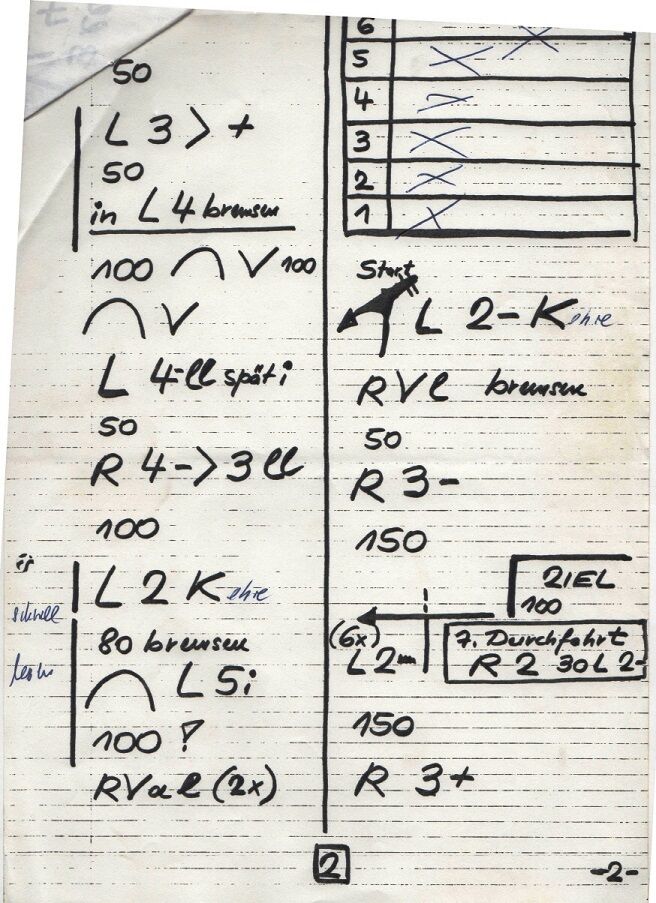 50
L 3 > +
50
in L 4 bremsen
100 V 100
V
L 4-ll spät i
50
R 4 -> 3 ll
100
L 2 Kehre
schnell
80 bremsen
L 5 i
100 !
R V a l (2x)
6
5
4
3
2
1
Start
L 2 - Kehre
R V l bremsen
50
R 3 -
150
ZIEL
100
(6x)
L 2 m
7. Durchfahrt
R 2 30 L 2 -
150
R 3 +
2
-2-